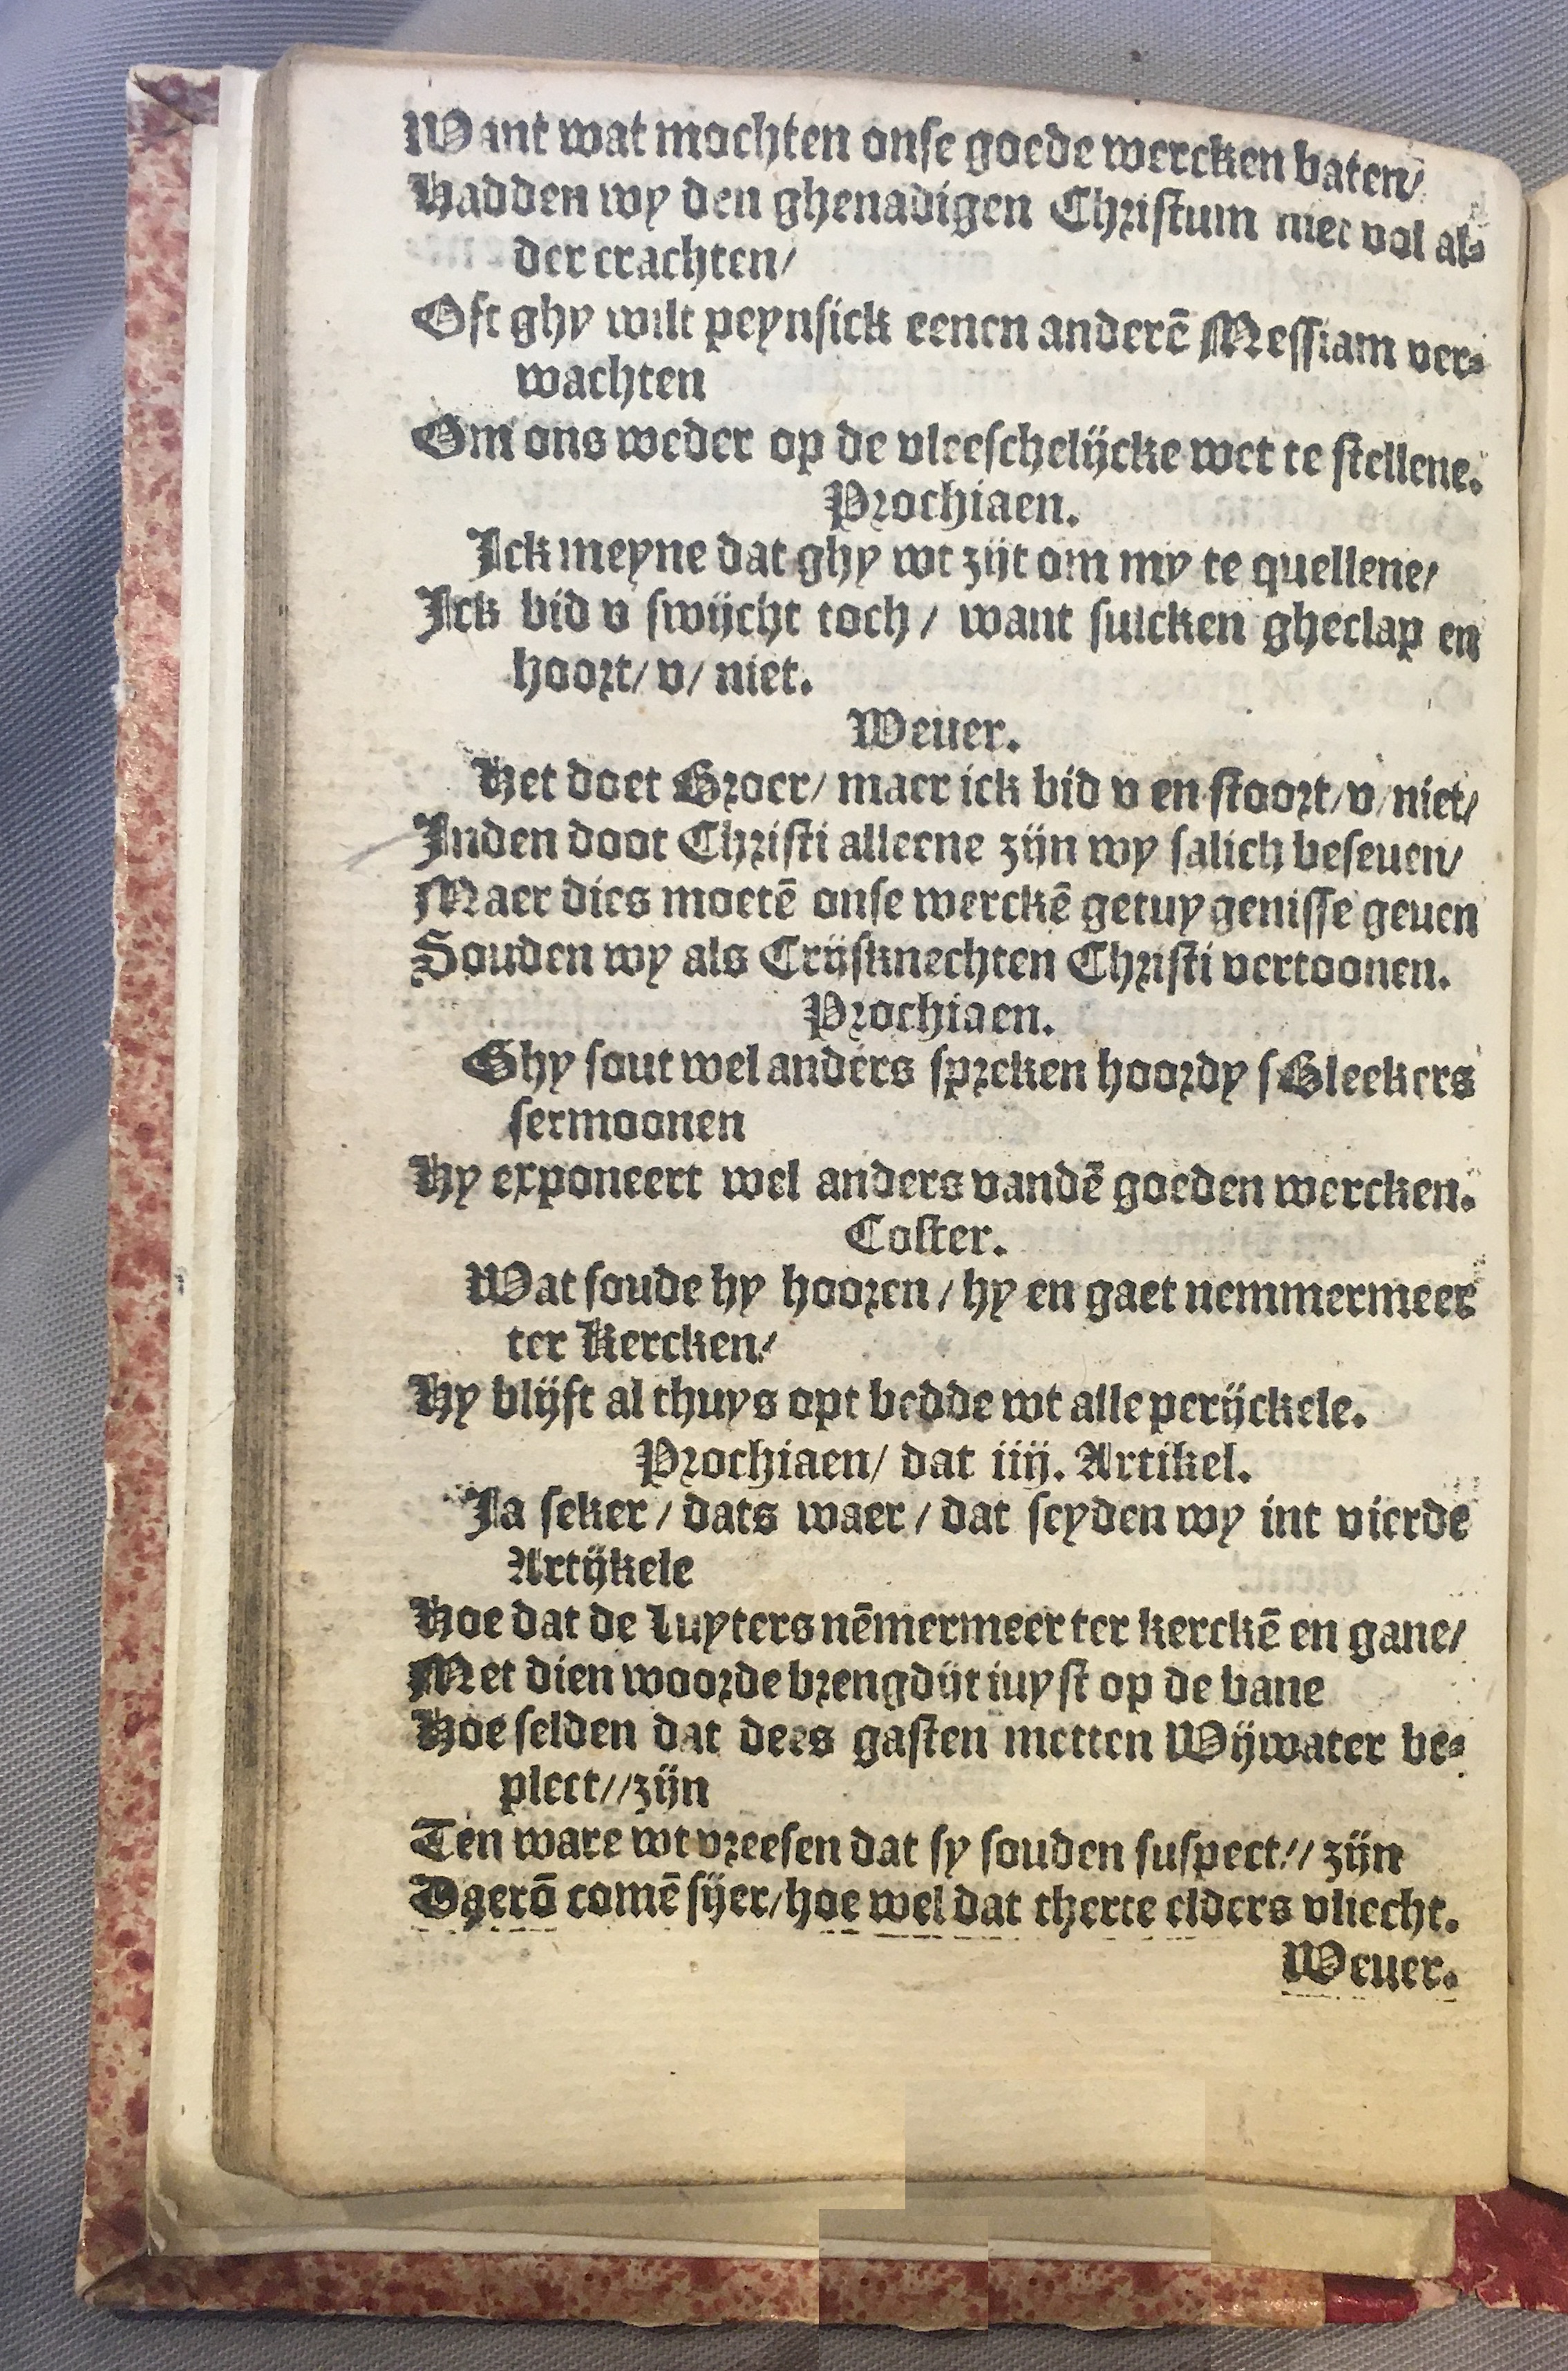 Want wat mochten onse goede wercken baten/
Hadden wy den ghenadigen Christum niet vol al⸗
der crachten/
Oft ghy wilt peynsick eenen anderē Messiam ver⸗
wachten
Om ons weder op de vleeschelijcke wet te stellene.
Prochiaen.
Ick meyne dat ghy wt zijt om my te quellene/
Ick bid v swijcht toch / want sulcken gheclap en
hoort/ v/ niet.
Weuer.
Het doet Broer/ maer ick bid v en stoort/ v/ niet/
Inden doot Christi alleene zijn wy salich beseuen/
Maer dies moetē onse werckē getuygenisse geuen
Souden wy als Crijsknechten Christi vertoonen.
Prochiaen.
Ghy sout wel anders spreken hoordy sBleekers
sermoonen
Hy exponeert wel anders vandē goeden wercken.
Coster.
Wat soude hy hooren / hy en gaet nemmermeer
ter Kercken/
Hy blijft al thuys opt bedde wt alle perijckele.
Prochiaen/ dat iiij. Artikel.
Ja seker / dats waer / dat seyden wy int vierde
Artijkele
Hoe dat de Luyters nēmermeer ter kerckē en gane/
Met dien woorde brengdijt iuyst op de bane
Hoe selden dat dees gasten metten Wijwater be⸗
plect//zijn
Ten ware wt vreesen dat sy souden suspect// zijn
Daerō comē sijer/hoe wel dat therte elders vliecht.
Weuer.